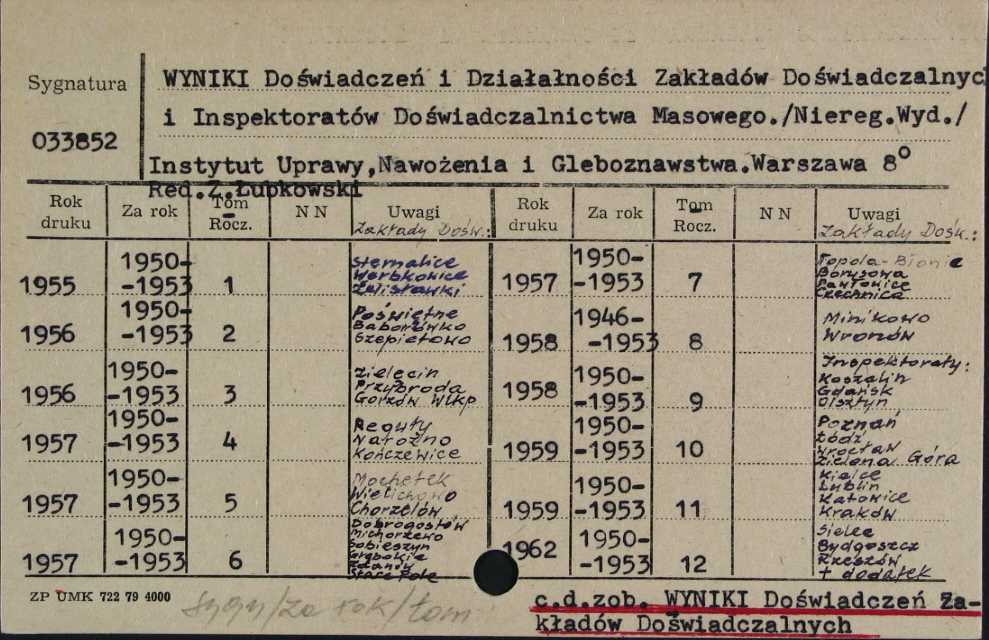 Sygnatura
033852
WYNIKI Doświadczeń i Działalności Zakładów Doświadczalnyc
i Inspektoratów Doświadczalnictwa Masowego./Niereg.Wyd./
Instytut Uprawy,Nawożenia i Gleboznawstwa.Warszawa 8°
Red.Z.Łubkowski
Rok druku Za rok Tom Rocz. NN Uwagi Zakłady Dośw.:
1955 1950-
-1953 1 Werbkowice
1956 1950-
-1953 2 Poświętne
Baborówko
Szepietowo
1956 1950-
-1953 3 Zielęcin
Przybroda
Gorzów Wlkp
1957 1950-
-1953 4 Reguły
Naroźno
Kończewice
1957 1950-
-1953 5 Mochełek
Wielichowo
Chorzelów
1957 1950-
-1953 6 Dobrogostów
Michorzewo
Sobieszyn
Głębokie
Żdanów
Stare Pole
Rok druku Za rok Tom Rocz. NN Uwagi Zakłady Dośw.:
1957 1950-
-1953 7 Topola-Błonie
Borusowa
Pawłowice
Czechnica
1958 1946-
-1953 8 Minikowo
Wronów
1958 1950-
-1953 9 Inspektoraty:
Koszalin
Gdańsk
Olsztyn
1959 1950-
-1953 10 Poznań
Łódź
Wrocław
Zielona Góra
1959 1950-
-1953 11 Kielce
Lublin
Katowice
Kraków
1962 1950-
-1953 12 Sielec
Bydgoszcz
Rzeszów
+ dodatek
ZP UMK 722 79 4000
sygn/za rok/tom
c.d.zob. WYNIKI Doświadczeń Za-
kładów Doświadczalnych